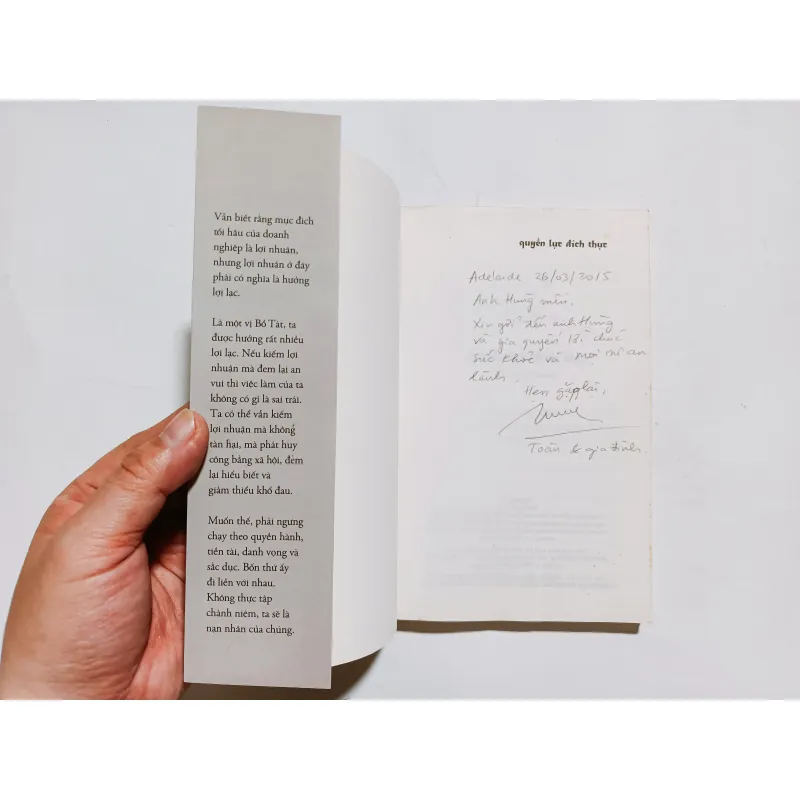 Vẫn biết rằng mục đích
tối hậu của doanh
nghiệp là lợi nhuận,
nhưng lợi nhuận ở đây
phải có nghĩa là hưởng
lợi lạc.
Là một vị Bồ Tát, ta
được hưởng rất nhiều
lợi lạc. Nếu kiếm lợi
nhuận mà đem lại an
vui thì việc làm của ta
không có gì là sai trái.
Ta có thể vẫn kiếm
lợi nhuận mà không
tàn hại, mà phát huy
công bằng xã hội, đem
lại hiểu biết và
giảm thiểu khổ đau.
Muốn thế, phải ngưng
chạy theo quyền hành,
tiền tài, danh vọng và
sắc dục. Bốn thứ ấy
đi liền với nhau.
Không thực tập
chánh niệm, ta sẽ là
nạn nhân của chúng.
quyền lực đích thực
Adelaide 26/03/2015
Anh Hùng mến,
Xin gởi đến anh Hùng
và gia quyến lời chúc
sức khoẻ và mọi sự an
lành.
Hẹn gặp lại,
Toàn & gia đình.